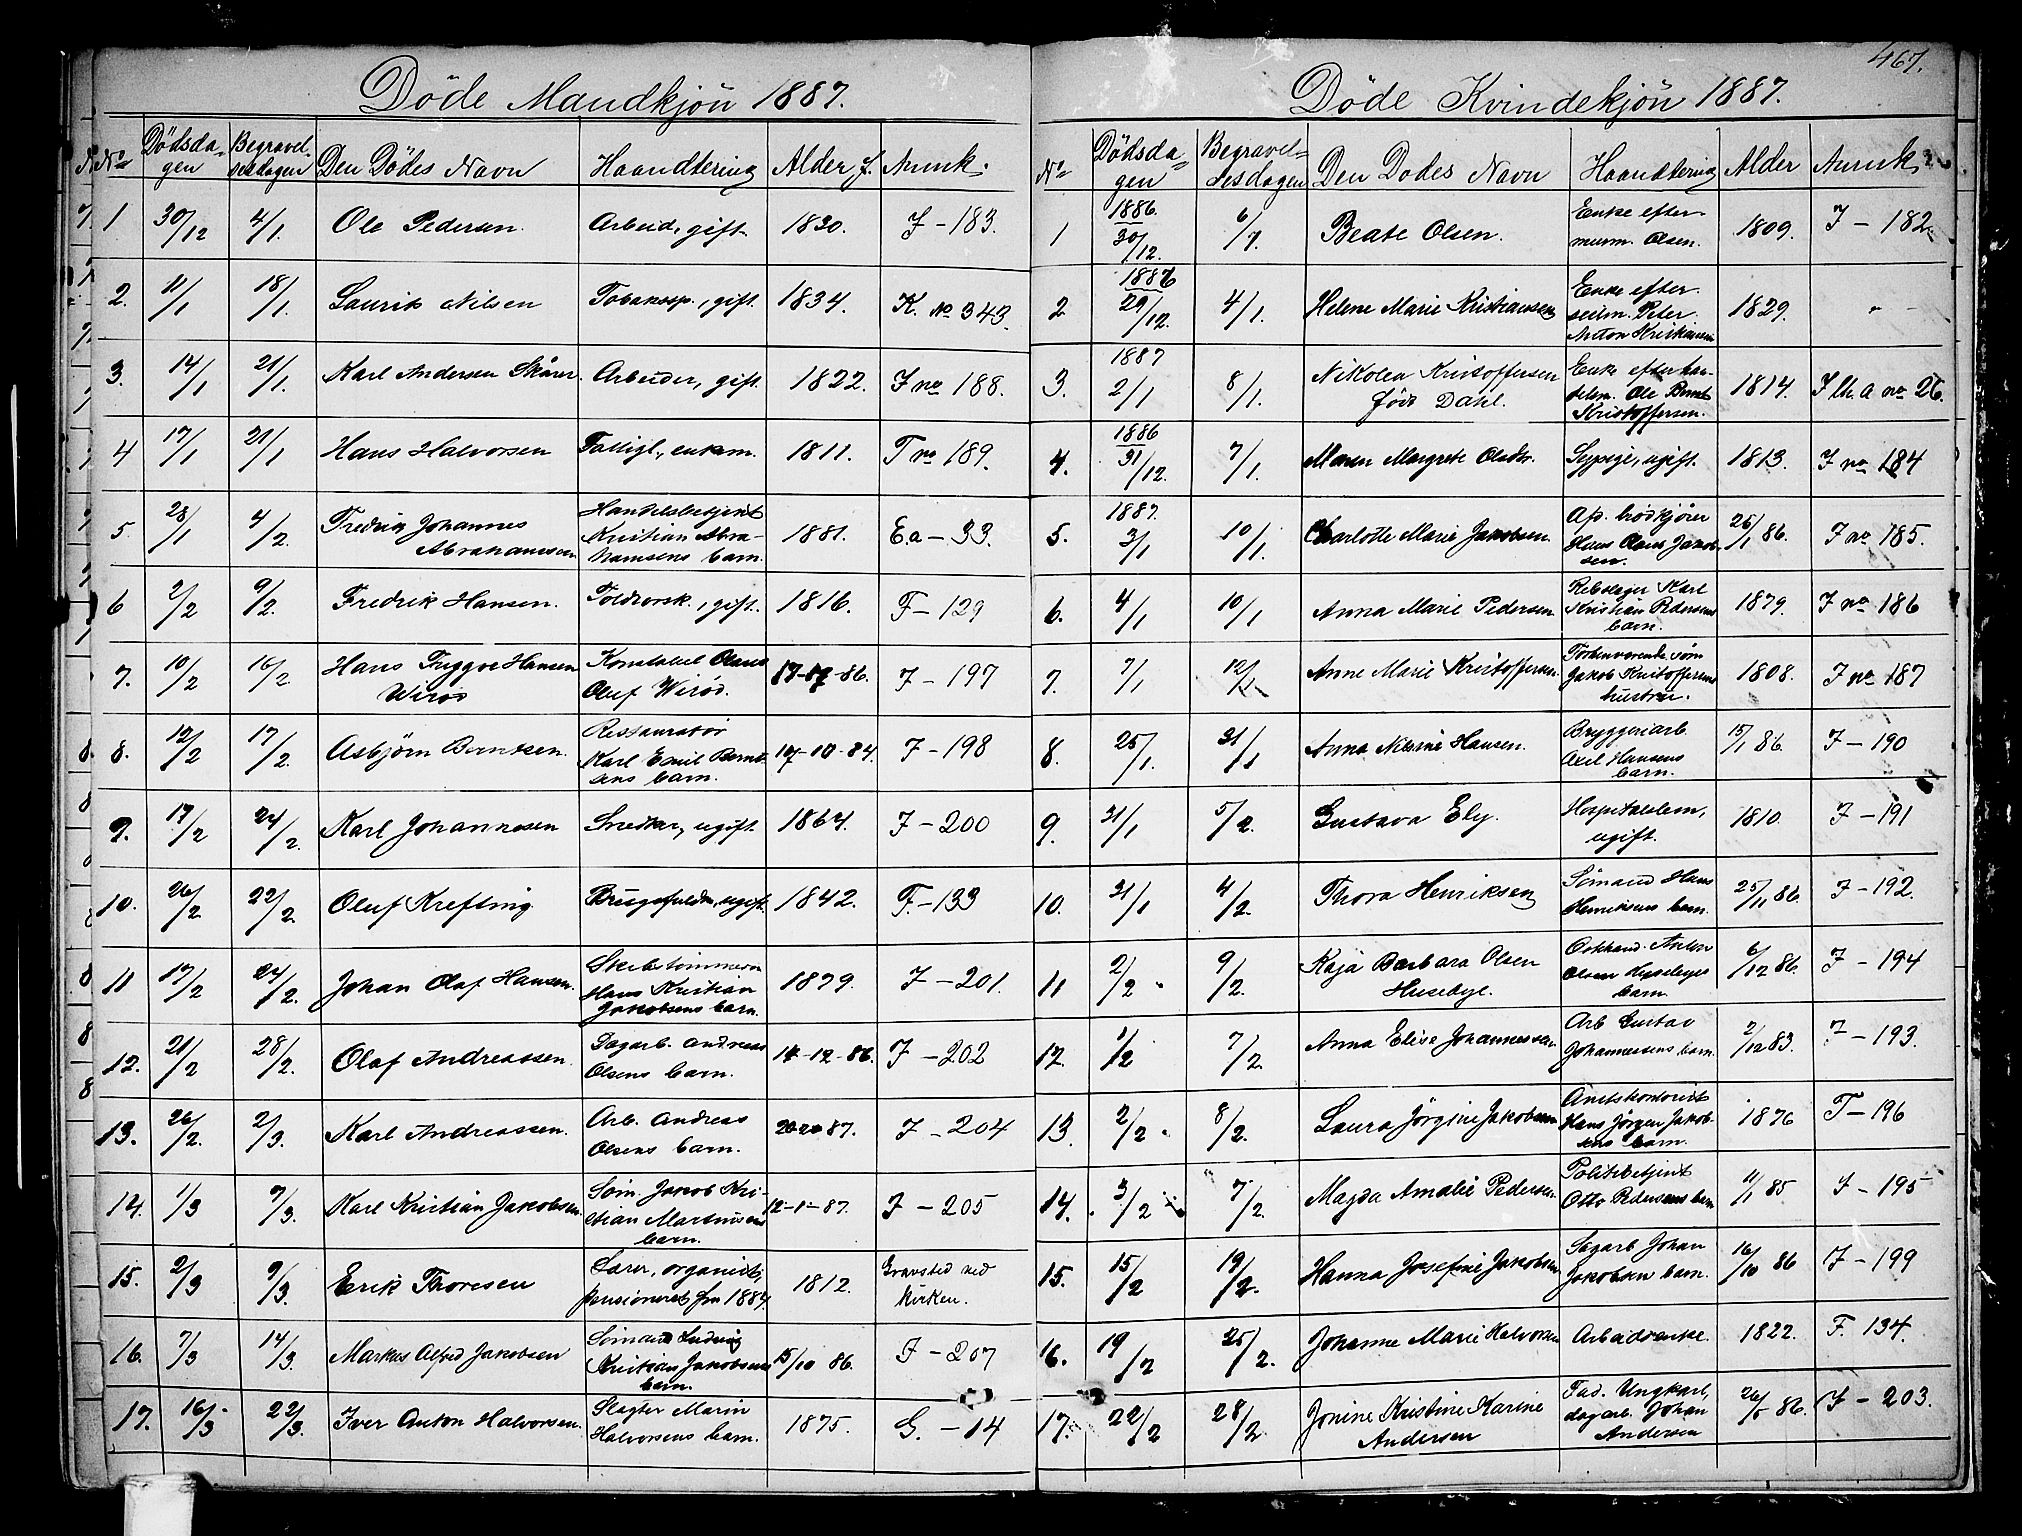 467.
Döde Mandkjön 1887.
No Dödsdagen Begravelsesdagen Den Dödes Navn Haandtering Alder f. Anmk.
1 30/12 4/1. Ole Pedersen. Arbeid, gift. 1830. J - 183.
2. 11/1 18/1. Laurits Nilsen Tobaksp., gift. 1834. K. No 343.
3. 14/1 21/1. Karl Andersen Skårer. Arbeider, gift. 1822. J no 188.
4 17/1 21/1 Hans Halvorsen Fattigl., enkem. 1811. J no 189.
5. 28/1 4/2. Fredrik Johannes Abrahamsen Handelsbetjent Kristian Abrahamsens barn. 1881. E.a - 33.
6 2/2 9/2. Fredrik Hansen. Toldrorsk., gift. 1816. F - 129
7. 10/2 16/2 Hans Tryggve Hansen Wiröd Konstabel Olaus Oluf Wiröd. 86. J - 197
8. 12/2 17/2. Asbjörn Berntsen. Restauratör Karl Emil Berntsens barn. 17-10-84. J - 198
9. 17/2 24/2. Karl Johannesen Snedker, ugift. 1864. J - 200
10. 26/2 22/2. Oluf Krefting Brugsfuldm., ugift. 1842. F. - 133
11 17/2 24/2. Johan Olaf Hansen. Skibstömmerm Hans Kristian Jakobsens barn. 1879. J - 201.
12. 21/2 28/2. Olaf Andreassen. Dagarb. Andreas Olsens barn. 14-12-86. J - 202
13. 26/2. 2/3. Karl Andreassen. Arb. Andreas Olsens barn. 87. J - 204
14. 1/3 7/3. Karl Kristian Jakobsen Söm. Jakob Kristian Martinisens barn. 12-1-87. J - 205
15. 2/3 9/3. Erik Thoresen Lærer, organist, pensioneret fra 1884 1812. Gravsted ved kirken.
16. 7/3 14/3. Markus Alfred Jakobsen Sömand Ludvig Kristian Jakobsens barn. 15/10 86. J - 207
17. 16/3 22/3. Iver Anton Halvorsen. Slagter Marin Halvorsens barn. 1875. G. - 14
Döde Kvindekjön 1887.
No Dödsdagen Begravelsesdagen Den Dödes Navn Haandtering Alder Anmk.
1 1886. 30/12. 6/1. Beate Olsen. Enke efter murm. Olsen. 1809. J - 182
2 1886 29/12. 4/1. Helene Marie Kristiansen Enke efter seilm. Peter Anton Kristiansen 1829. "
3. 1887 2/1 8/1. Nikolea Kristoffersen född Dahl. Enke efter handelsm. Ole Bernt Kristoffersen. 1814. J lh. a no 26.
4. 1886 31/12. 7/1. Maren Margrete Olsdtr. Sypige, ugift. 1813. J no 184
5. 1887. 3/1 10/1. Charlotte Marie Jakobsen. Af. brödkjörer Hans Olaus Jakobsen. 26/1 86. J no 185.
6. 4/1 10/1 Anna Marie Pedersen Rebslager Karl Kristian Pedersens barn. 1879. J no 186
7. 7/1 12/1 Anne Marie Kristoffersen. Forhenværende söm Jakob Kristoffersens hustru. 1808. J no 187
8. 25/1. 31/1 Anna Nilsine Hansen. Bryggeriarb. Axel Hansens barn. 15/1 86. J - 190
9. 31/1 5/2. Gustava Ely. Hospitalslem, ugift. 1810. J - 191
10. 31/1 4/2. Thora Henriksen Sömand Hans Henriksens barn. 25/11 86. J - 192.
11 2/2 9/2. Kaja Barbara Olsen Husebye. Anton Olsen Husebyes barn. 6/12 86. J - 194
12. 1/2 7/2. Anna Elise Johannessen. Arb Gustav Johannessens barn. 2/12 83. J - 193.
13. 2/2 8/2. Laura Jörgine Jakobsen Amtskontorist Hans Jörgen Jakobsens barn. 1876 F - 196
14. 3/2 7/2. Magda Amalie Pedersen Politibetjent Otto Pedersens barn 11/1 85 J - 195
15. 15/2 19/2. Hanna Josefine Jakobsen Dagarb Johan Jakobsen barn. 16/10 86 J - 199
16. 19/2 25/2. Johanne Marie Halvorsen Arbeidsenke. 1822. F. 134.
17. 22/2 28/2. Jonine Kristine Karine Andersen Fad. Ungkarl, dagarb. Johan Andersen 86. J - 203.